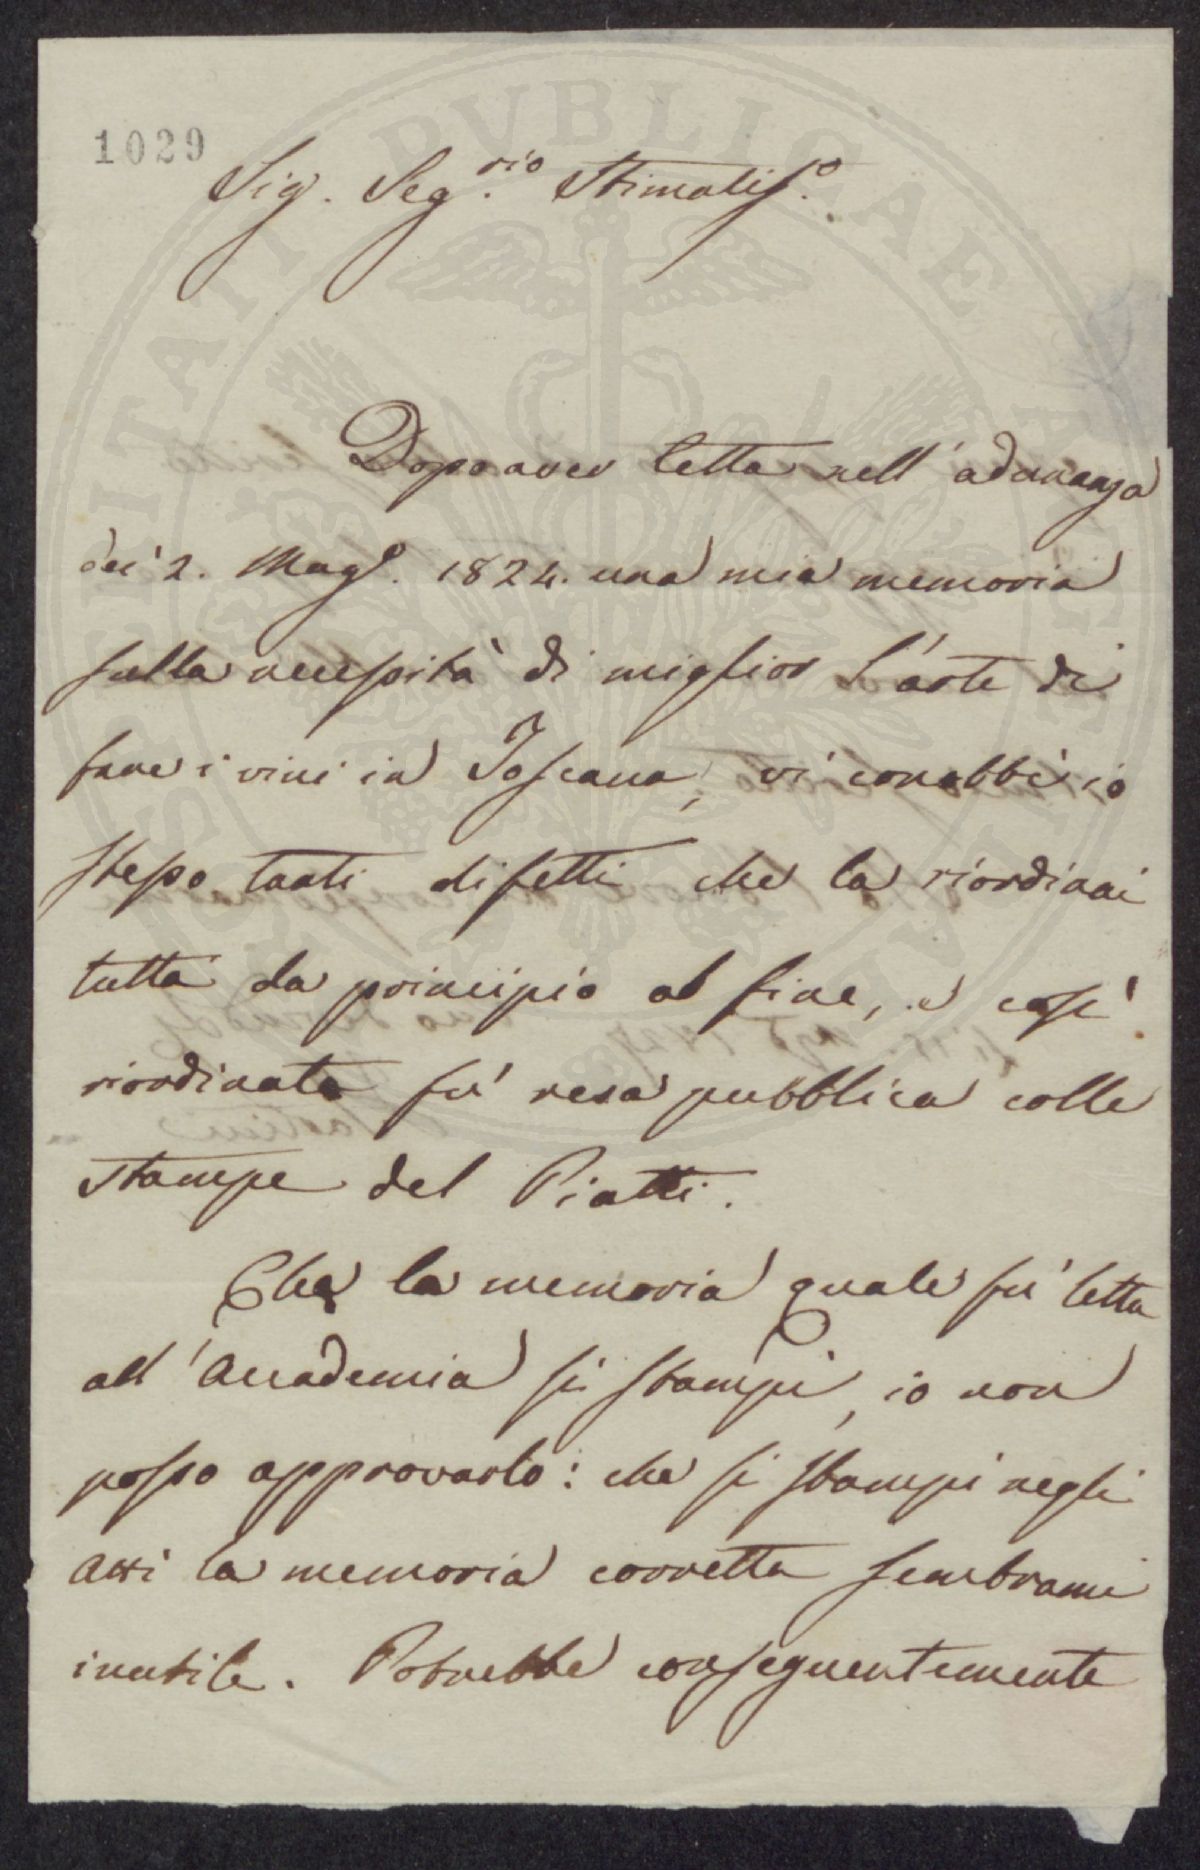 1029
Sig. Seg.rio Stimatiss.o
Dopo aver letta nell' adunanza
dei 2. Magg.o 1824. una mia memoria
sulla necessità di miglior l'arte di
fare i vini in Toscana, vi conobbi io
stesso tanti difetti che la riordinai
tutta da principio al fine, e così
riordinata fù resa pubblica colle
stampe del Piatti.
Che la memoria quale fù letta
all' Accademia si stampi, io non
posso approvarlo: che si stampi negli
Atti la memoria corretta sembrami
inutile. Potrebbe conseguentemente